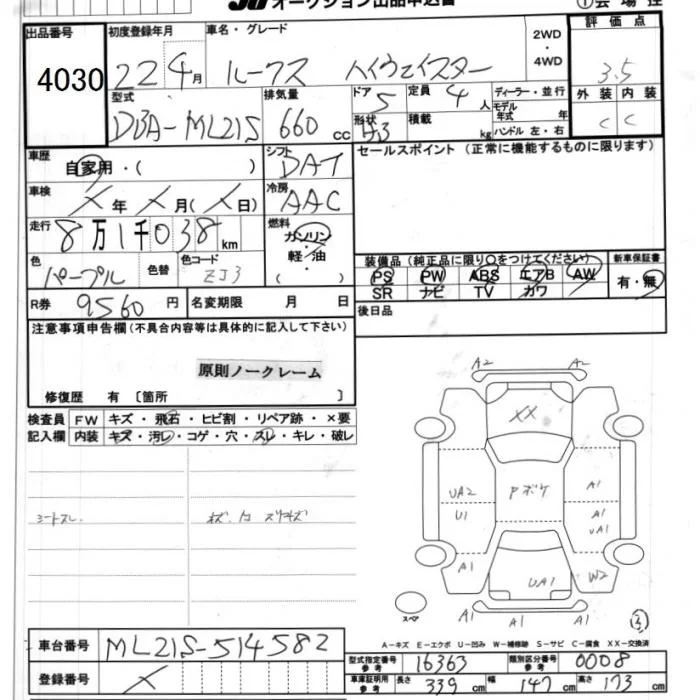 オークション出品申込書
① 会場控
出品番号
4030
初度登録年月
22 4月
車名・グレード
ルークス ハイウェイスター
2WD
・
4WD
評価点
3.5
型式
DBA-ML21S
排気量
660 cc
ドア 5
定員 4 人
ディーラー・並行
形状
積載 kg
モデル年式 年
ハンドル 左・右
外装 内装
C C
車歴
自家用・( )
シフト
DAT
セールスポイント (正常に機能するものに限ります)
車検
X年 X月(X日)
冷房
AAC
走行
8万1千038km
燃料
ガソリン
・
軽・油
( )
色
パープル
色替
色コード
ZJ3
装備品(純正品に限り○をつけてください)
新車保証書
PS PW ABS エアB AW
SR ナビ TV カワ
有・無
R券
9560円
名変期限 月 日
後日品
注意事項申告欄(不具合内容等は具体的に記入して下さい)
原則ノークレーム
修復歴 有〔箇所 〕
検査員
記入欄
FW キズ・飛石・ヒビ割・リペア跡・×要
内装 キズ・汚レ・コゲ・穴・スレ・キレ・破レ
シートスレ.
A2 A2
XX
UA2 Pボケ A1
U1 A1
UA1
A1 UA1 W2
A1 A1
スペア
A-キズ E-エクボ U-凹み W-補修跡 S-サビ C-腐食 XX-交換済
車台番号
ML21S-514582
登録番号
X
型式指定番号
参考
16363
類別区分番号
参考
0008
車庫証明用
参考
長さ 339cm
幅 147cm
高さ 173cm